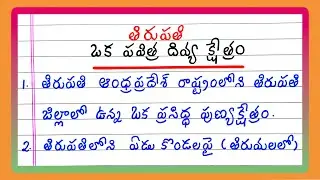 తిరుపతి
ఒక పవిత్ర దివ్య క్షేత్రం
1. తిరుపతి ఆంధ్రప్రదేశ్ రాష్ట్రంలోని తిరుపతి
జిల్లాలో ఉన్న ఒక ప్రసిద్ధ పుణ్యక్షేత్రం.
2. తిరుపతిలోని ఏడు కొండలపై (తిరుమలలో)